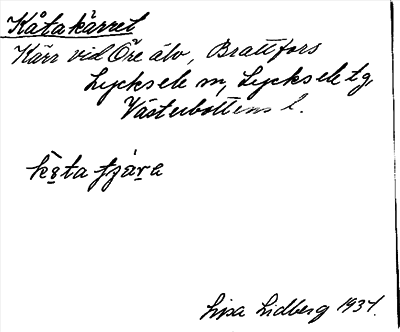 Kåtakärret
Kärr vid Öre älv, Brattfors
Lycksele sn, Lycksele tg.
Västerbottens l.
Lisa Lidberg 1937.